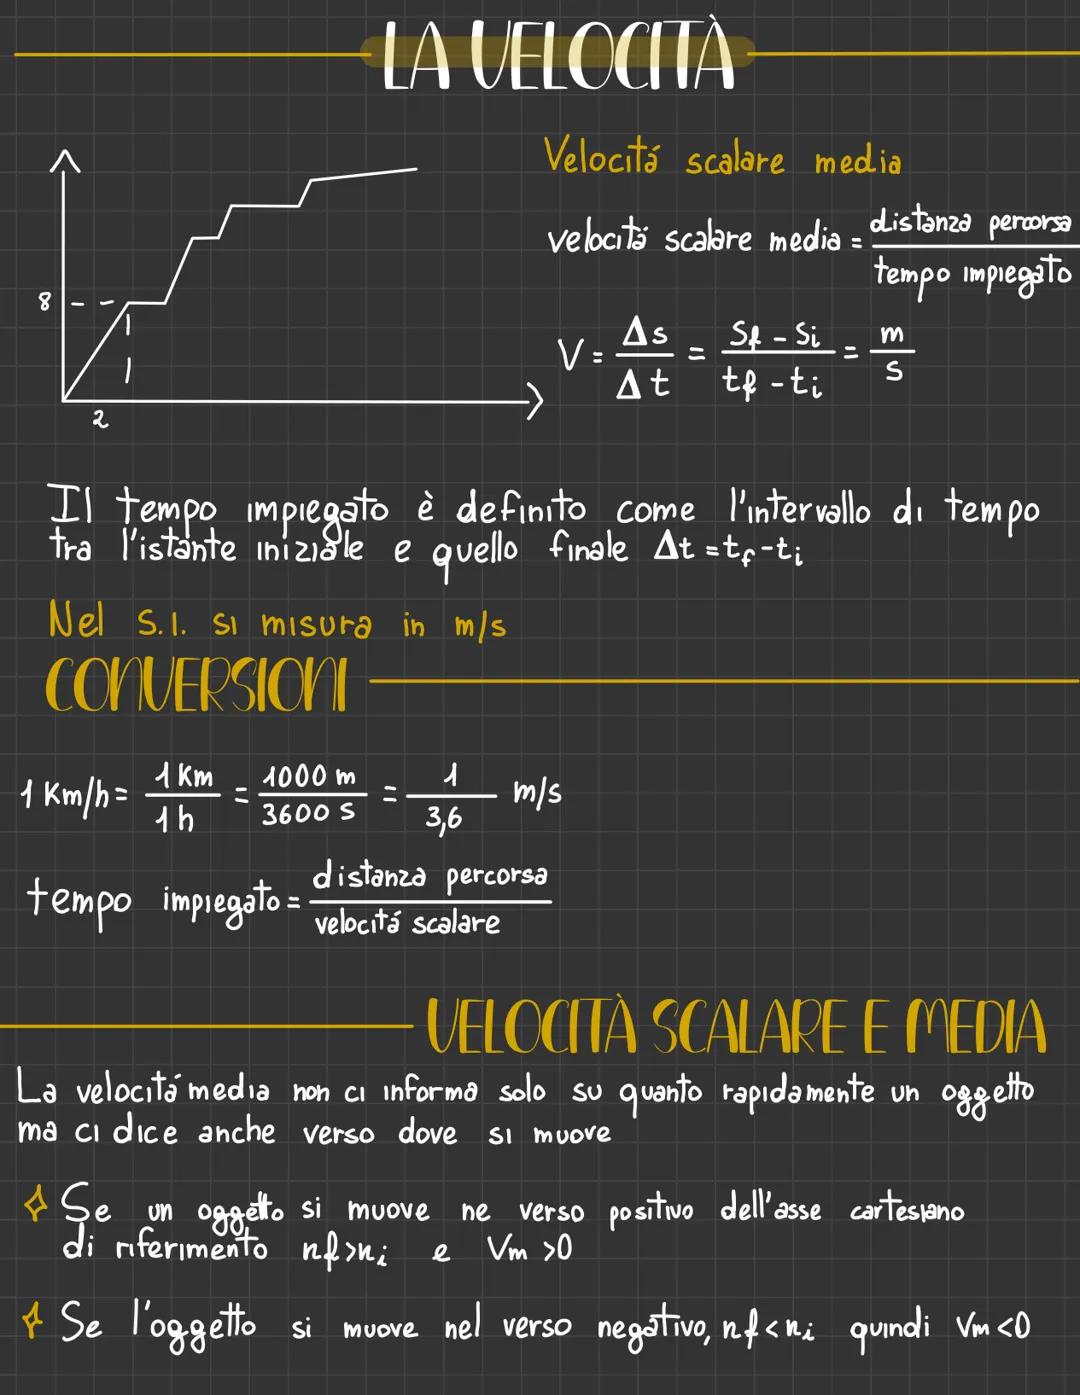 LA VELOCITÀ
Velocitá scalare media
velocitá scalare media = distanza percorsa / tempo impiegato
8
2
V = Δs / Δt = Sf - Si / tf - ti = m / s
Il tempo impiegato è definito come l'intervallo di tempo
tra l'istante iniziale e quello finale Δt = tf - ti
Nel S.I. si misura in m/s
CONVERSIONI
1 Km/h = 1 Km / 1 h = 1000 m / 3600 s = 1 / 3,6 m/s
tempo impiegato = distanza percorsa / velocitá scalare
VELOCITÀ SCALARE E MEDIA
La velocitá media non ci informa solo su quanto rapidamente un oggetto
ma ci dice anche verso dove si muove
Se un oggetto si muove ne verso positivo dell'asse cartesiano
di riferimento nf>ni e Vm >0
Se l'oggetto si muove nel verso negativo, nf<ni quindi Vm <0